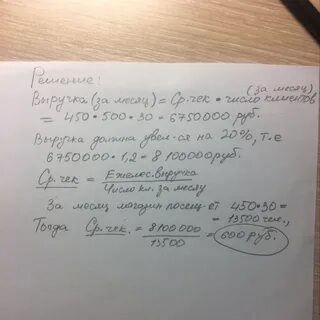 Решение:
(за месяц)
Выручка (за месяц) = Ср.чек • число клиентов
= 450 • 500 • 30 = 6750000 руб.
Выручка должна увел-ся на 20%, т.е
6750000 • 1,2 = 8 100000 руб.
Ср.чек = Ежемес. выручка
Число кл. за месяц
За месяц магазин посещ-ет 450•30 =
= 13500 чел.,
Тогда Ср.чек. = 8100000 / 13500 = 600 руб.